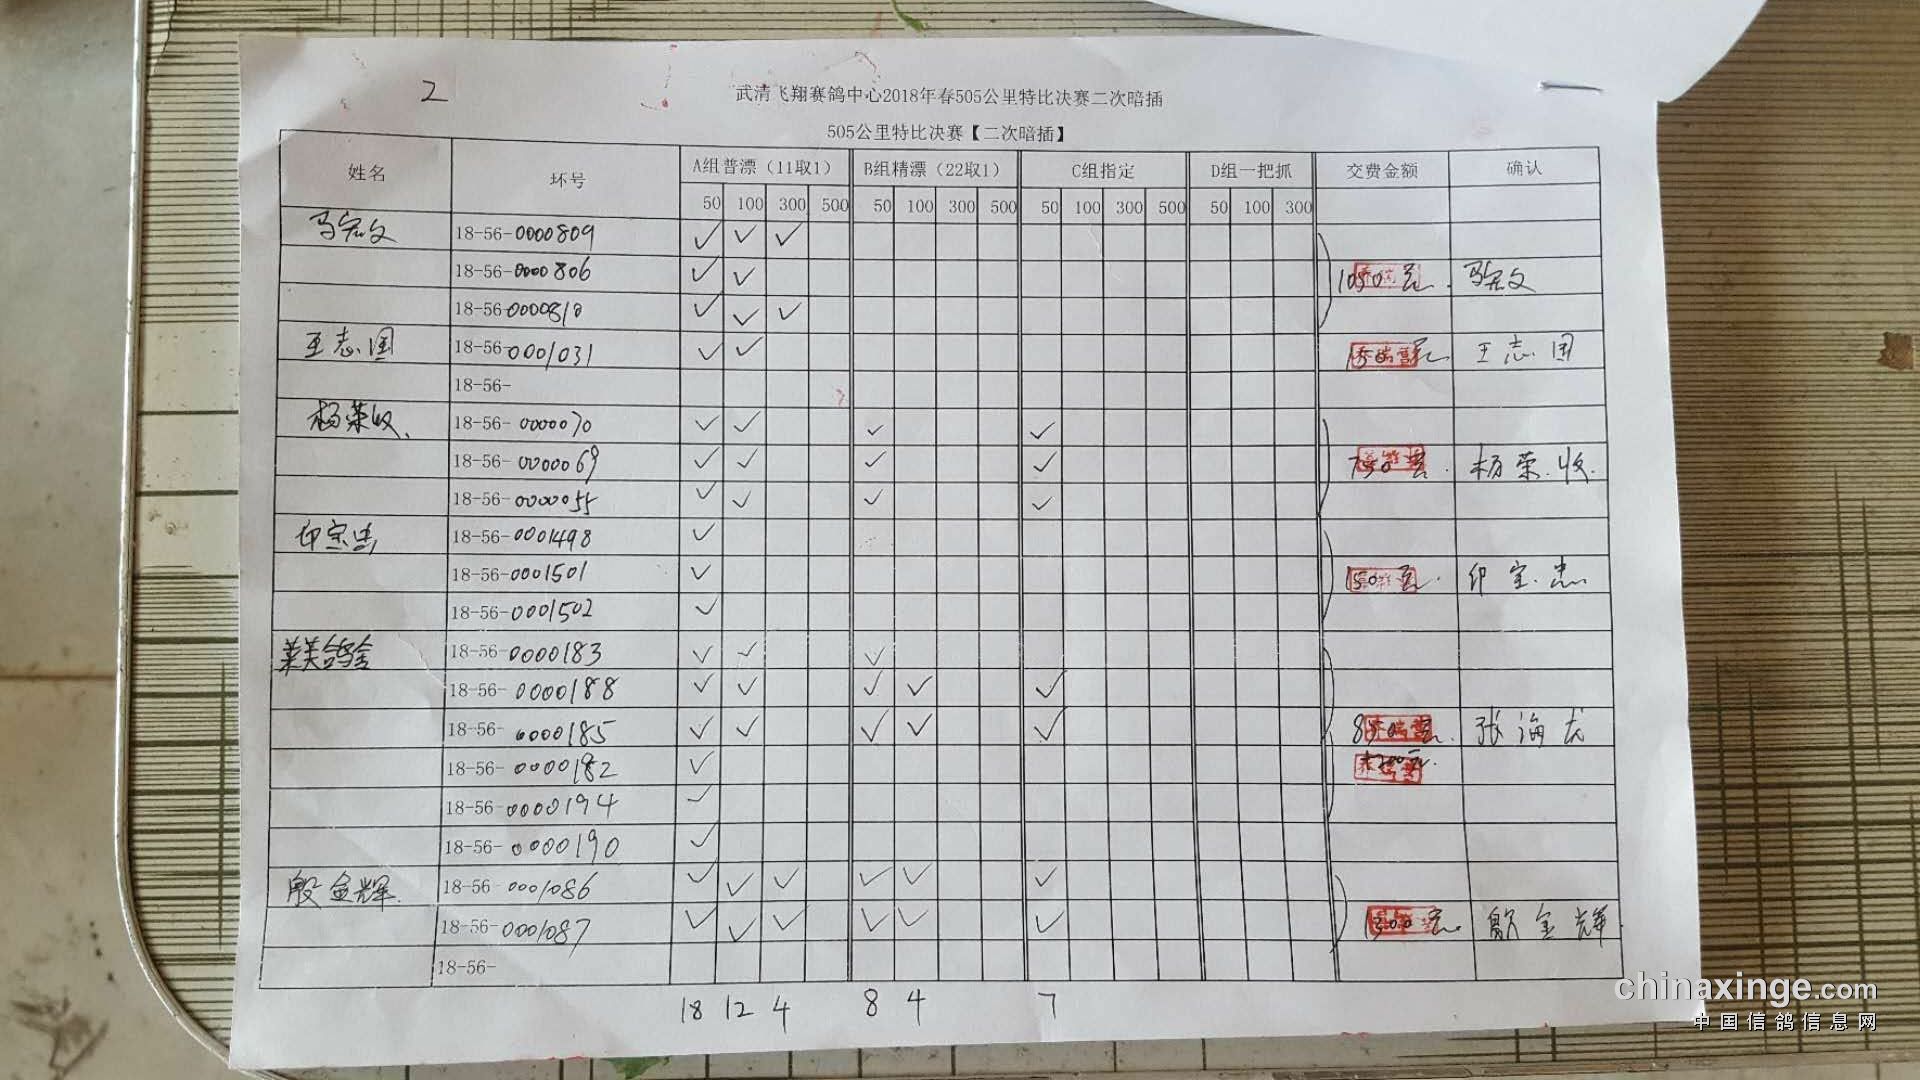 2
武清飞翔赛鸽中心2018年春505公里特比决赛二次暗插
505公里特比决赛【二次暗插】
姓名 环号 A组普漂（11取1） B组精漂（22取1） C组指定 D组一把抓 交费金额 确认
50 100 300 500 50 100 300 500 50 100 300 500 50 100 300
马宏文 18-56-0000809 ✓ ✓ ✓
18-56-0000806 ✓ ✓ 1050元. 马宏文
18-56-0000810 ✓ ✓ ✓
王志国 18-56-0001031 ✓ ✓ 150元 王志国
18-56-
杨荣收 18-56-0000070 ✓ ✓ ✓ ✓
18-56-0000069 ✓ ✓ ✓ ✓ 750元. 杨荣收.
18-56-0000055 ✓ ✓ ✓ ✓
印宝忠 18-56-0001498 ✓
18-56-0001501 ✓ 150元. 印宝忠
18-56-0001502 ✓
莱美鸽舍 18-56-0000183 ✓ ✓ ✓
18-56-0000188 ✓ ✓ ✓ ✓ ✓
18-56-0000185 ✓ ✓ ✓ ✓ ✓ 850元. 张海龙
18-56-0000182 ✓
18-56-0000194 ✓
18-56-0000190 ✓
殷金辉. 18-56-0001086 ✓ ✓ ✓ ✓ ✓ ✓
18-56-0001087 ✓ ✓ ✓ ✓ ✓ ✓ 1300元. 殷金辉
18-56-
18 12 4 8 4 7
chinaxinge.com
中国信鸽信息网